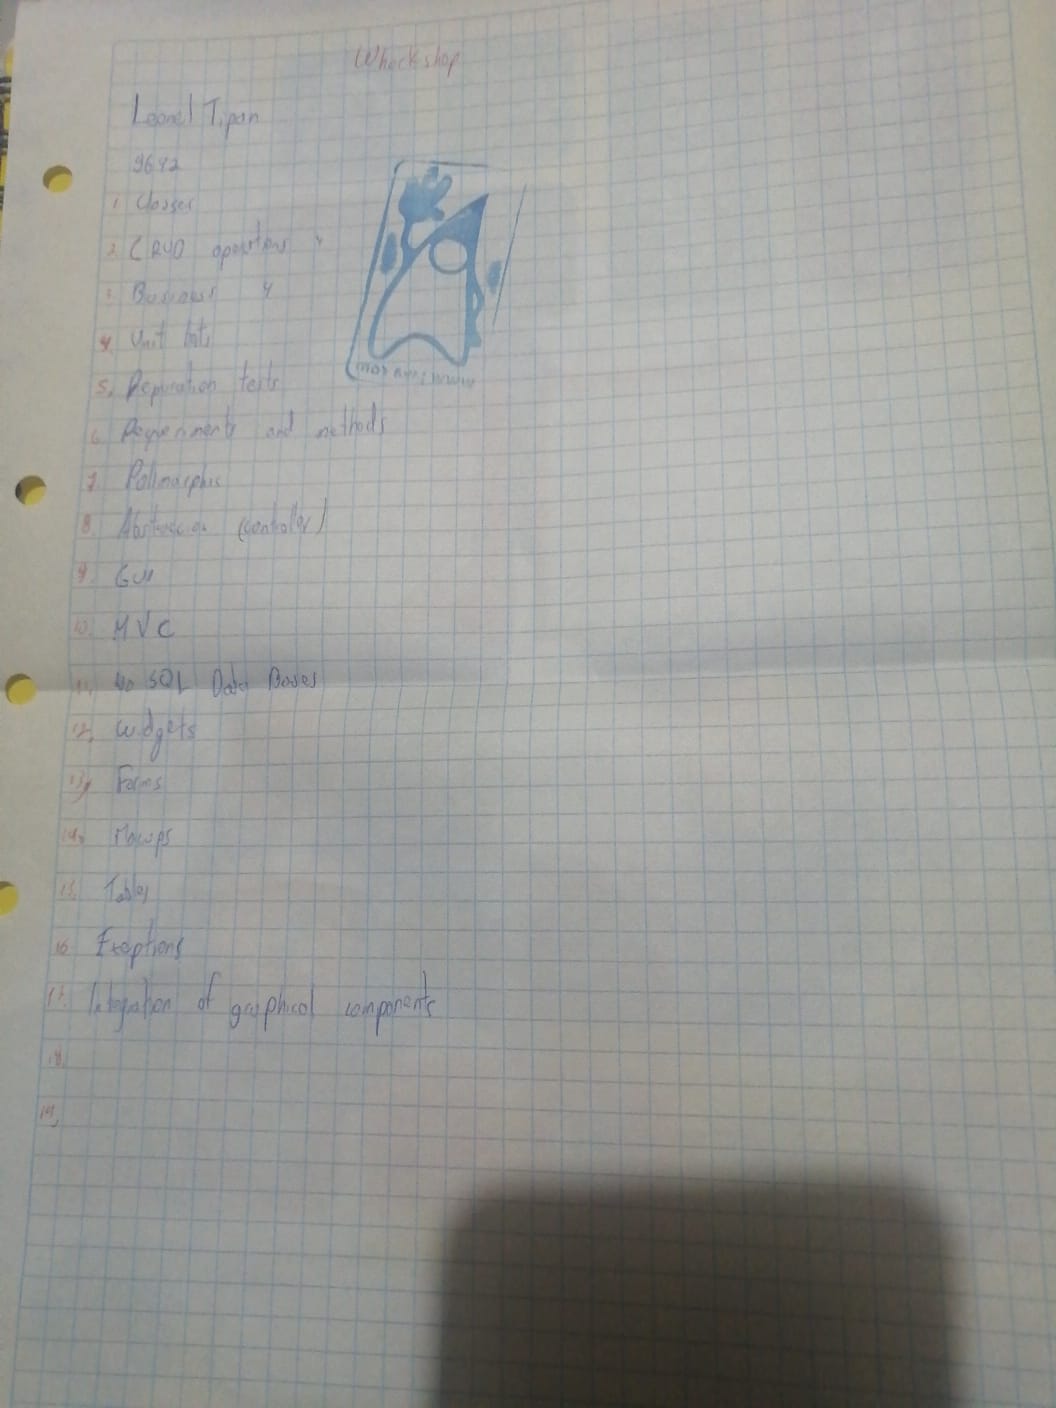 Whorkshop
Leonel Tipan
9642
1. Classes
2. CRUD operations 4
3. Business 4
4. Unit tets
5. tests
6. Requeriments and methods
7. Polimorphis
8. Abstraccion (controller)
9. GUI
10. MVC
11. No SQL Data Bases
12. Widgets
13. Forms
14. Mocups
15. Tables
16. Exeptions
17. Integration of graphical components
18.
19.